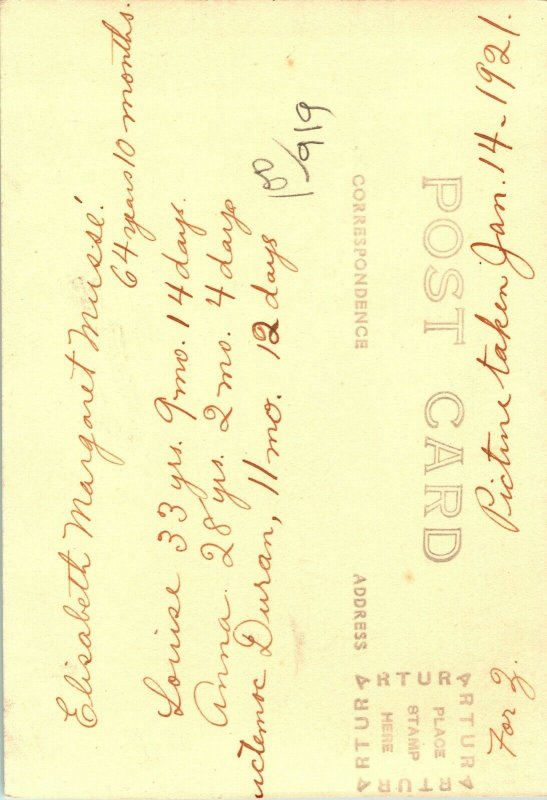 Elisabeth Margaret Missé.
64 years 10 months.
Louise 33 yrs. 9 mo. 14 days.
Anna 28 yrs. 2 mo. 4 days
uctemoc Duran, 11 mo. 12 days
919
CORRESPONDENCE
ADDRESS
POST CARD
ARTURA
ARTURA
ARTURA
ARTURA
PLACE
STAMP
HERE
Picture taken Jan. 14-1921.
For Z.